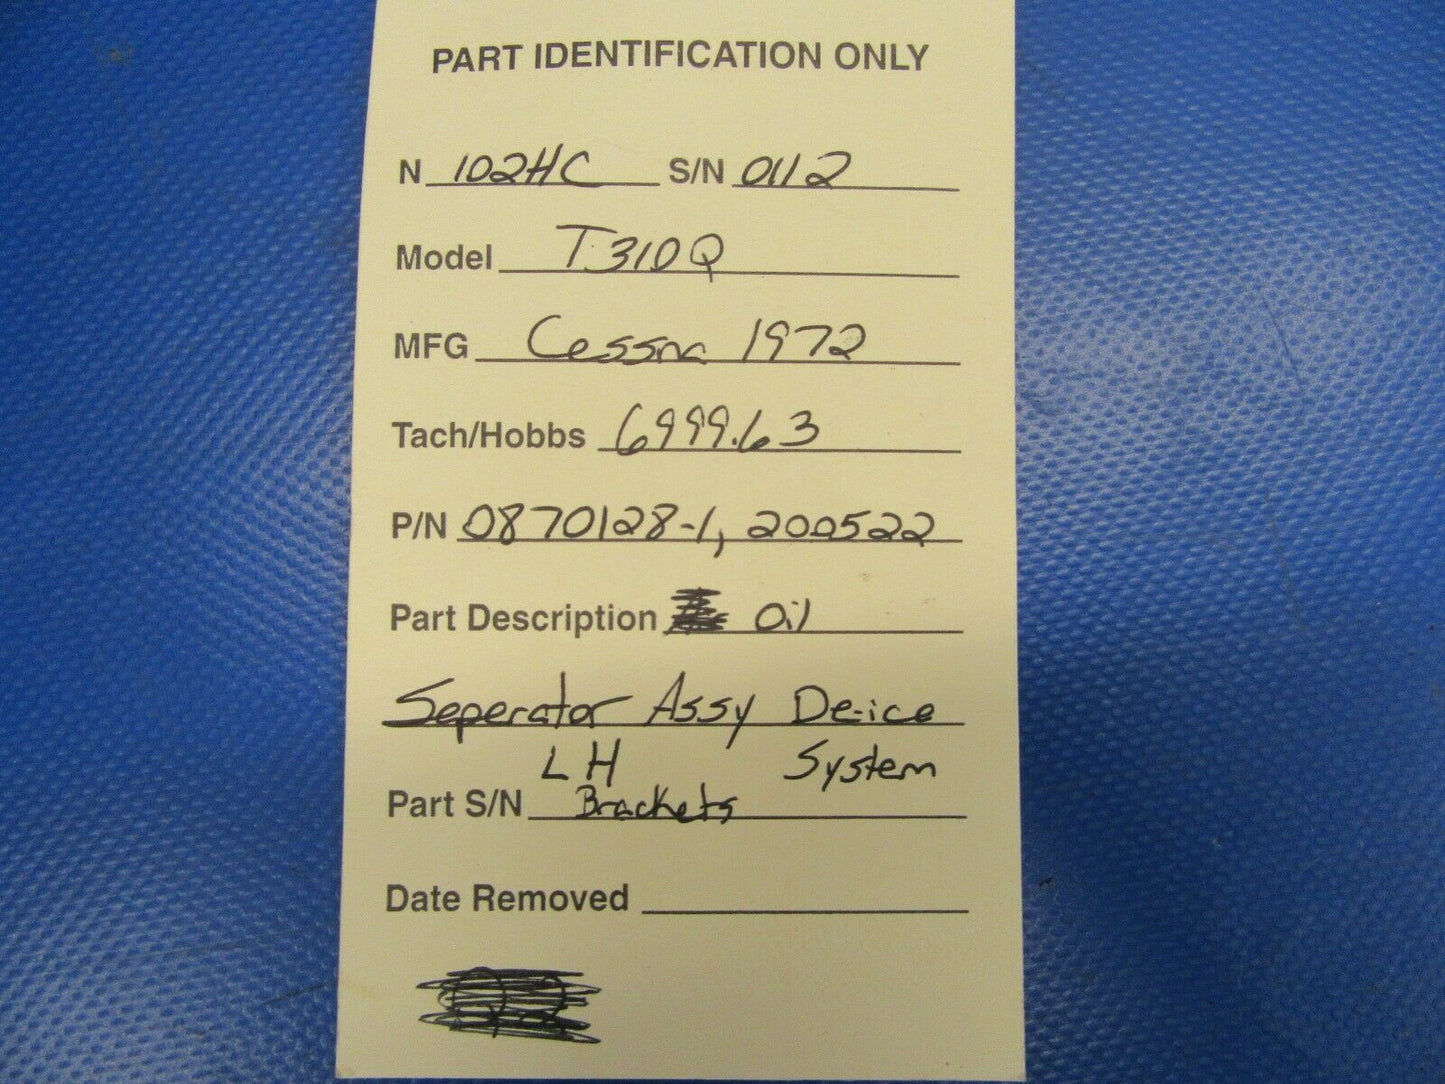 PART IDENTIFICATION ONLY
N 102HC S/N 0112
Model T310Q
MFG Cessna 1972
Tach/Hobbs 6999.63
P/N 0870128-1, 200522
Part Description Oil
Seperator Assy De-ice
LH System
Part S/N Brackets
Date Removed